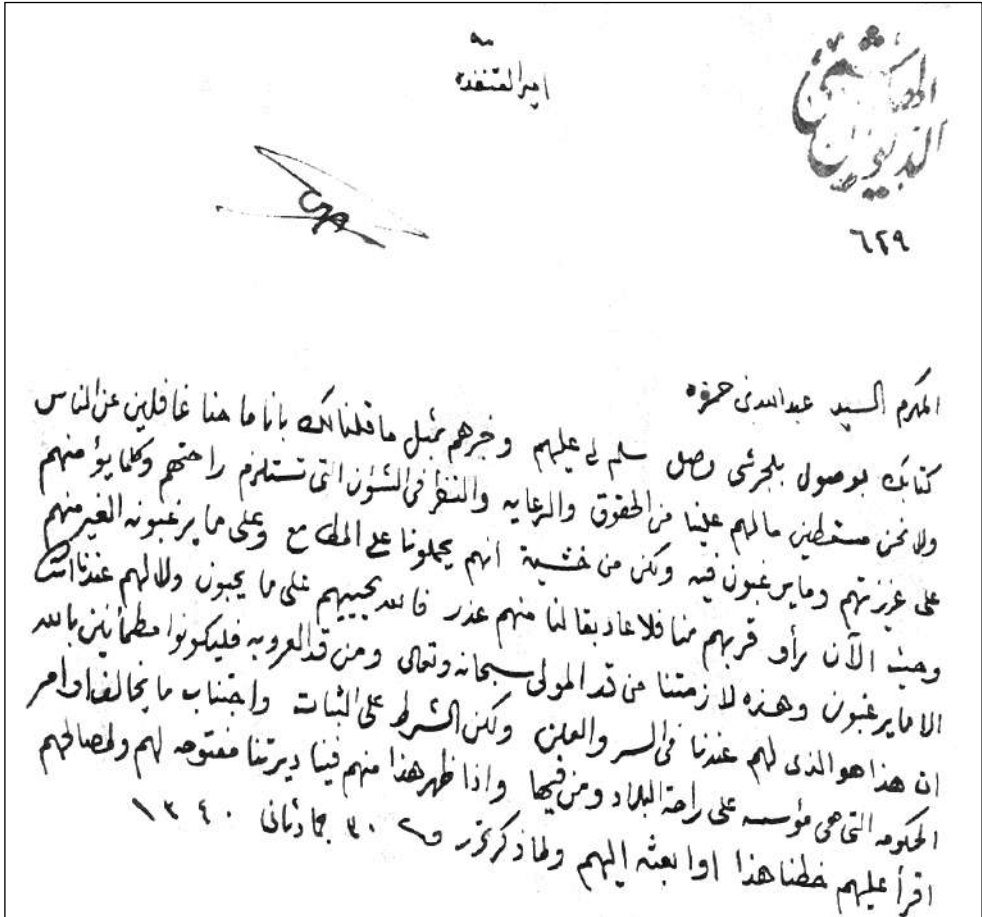 الديوان الهاشمي
٦٢٩
امير القنفده
المكرم السيد عبدالله بن حمزه
كتابك بوصول بلجرشى وصل سلم لي عليهم وخبرهم بمثل ما قلنا لك بانا ما حنا غافلين عن الناس
ولا نحن مسقطين ما لهم علينا من الحقوق والرعايه والنظر في الشئون التى تستلزم راحتهم وكلما يؤمنهم
على عزيزتهم وما يرغبون فيه ولكن من خشية انهم يحملونا على المطامع وعلى ما يرغبونه الغير منهم
وحيث الآن رأو قربهم منا فلا عاد بقا لنا منهم عذر فالله يحييهم على ما يحبون ولا لهم عندنا
الا ما يرغبون وهذه لازمتنا من قد المولى سبحانه وتعالى ومن قد العروبه فليكونوا مطمأنين بالله
ان هذا هو الذى لهم عندنا في السر والعلن ولكن الشرط على الثبات واجتناب ما يخالف اوامر
الحكومه التى هي مؤسسه على راحة البلاد ومن فيها واذا ظهر هذا منهم فينا ديرتنا مفتوحه لهم ولمصالحهم
اقرأ عليهم خطنا هذا اوابعثه إليهم ولما ذكر تحرر في ٣٠ جماد ثانى ١٣٤٠